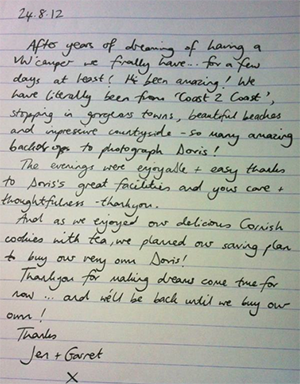 24.8.12
After years of dreaming of having a
VW camper we finally have... for a few
days at least! It's been amazing! We
have literally been from 'Coast 2 Coast',
stopping in gorgeous towns, beautiful beaches
and impressive countryside - so many amazing
backdrops to photograph Doris!
The evenings were enjoyable + easy thanks
to Doris's great facilities and your care +
thoughtfulness - thankyou.
And as we enjoyed our delicious Cornish
cookies with tea, we planned our saving plan
to buy our very own Doris!
Thankyou for making dreams come true for
now ... and we'll be back until we buy our
own!
Thanks
Jen + Garret
X